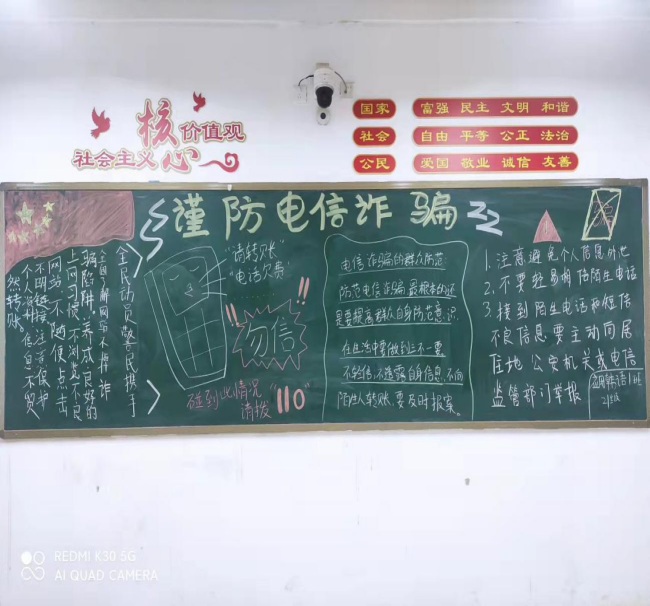 核
价值观
社会主义
心
国家 富强 民主 文明 和谐
社会 自由 平等 公正 法治
公民 爱国 敬业 诚信 友善
谨防电信诈骗
全民动员 警民携手
全面了解网络 不掉诈
骗陷阱，养成良好的
上网习惯，不浏览不良
网站，不随便点击
不明链接，注意保护
个人资料信息，不贸
然转账
"请转账"
"电话欠费"
勿信
碰到此情况
请拨"110"
电信诈骗的群众防范
防范电信诈骗，最根本的还
是要提高群众自身防范意识
在生活中要做到三不一要
不轻信，不透露自身信息，不向
陌生人转账，要及时报案。
1. 注意避免个人信息外泄
2. 不要轻易相信陌生电话
3. 接到陌生电话和短信
不良信息要主动向居
住地公安机关或电信
监管部门举报
21级
REDMI K30 5G
AI QUAD CAMERA